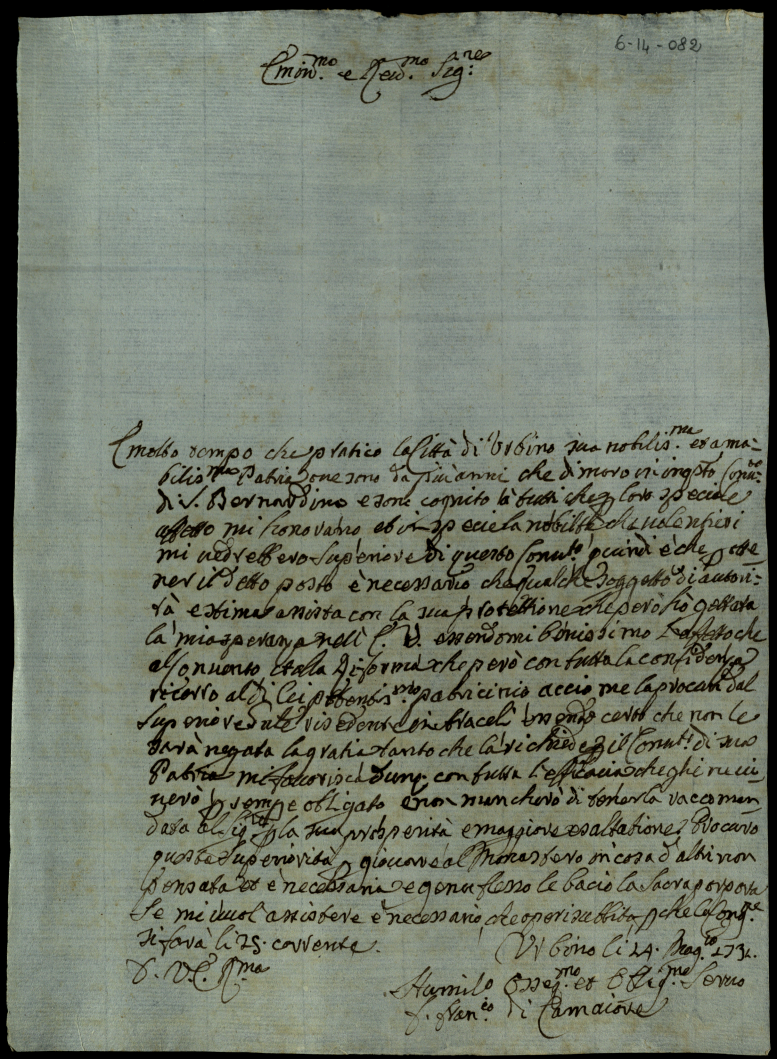 6-14-082
Emin.mo e Rev.mo Sig.re
È molto tempo che pratico la Città di Urbino sua nobilis.ma et ama-
bilis.ma Patria, ove sono da più anni che dimoro in questo Conu.to
di S. Bernardino e sono cognito à tutti che p loro speciale
affetto mi honorano, et in specie la nobiltà che volentieri
mi vedrebbero Superiore di questo Conu.to quindi è che p otte-
ner il detto posto è necessario che qualche soggetto di autori-
tà e stima assista con la sua protettione che però hò gettata
la mia speranza nell' E. V. essendomi benissimo l'affetto che
al Convento et alla Riforma che però con tutta la confidenza
ricorro al di lei potentis.mo patricinio acciò me la procuri dal
Superiore residente in Araceli essendo certo che non le
sarà negata la gratia tanto che la richiede p il Conu.to di sua
Patria mi favorisca dunq. con tutta l'efficacia che gli ne vi-
verò p sempre obligato e non mancherò di tenerla raccoman-
data al Sig.re p la sua prosperità e maggiore esaltatione. Procuro
questa superiorità p giovare al Monastero in cosa d'altri non
pensata et è necessaria e genuflesso le bacio la Sacra porpora
Se mi vuol assistere è necessario, che operi subbito p che la Cong.ne
si farà li 25. corrente. Urbino li 24. Mag.o 1731.
D. V. E. R.ma
Humil.o Osseq.mo et Oblig.mo Servo
f. Fran.co di Camaiore